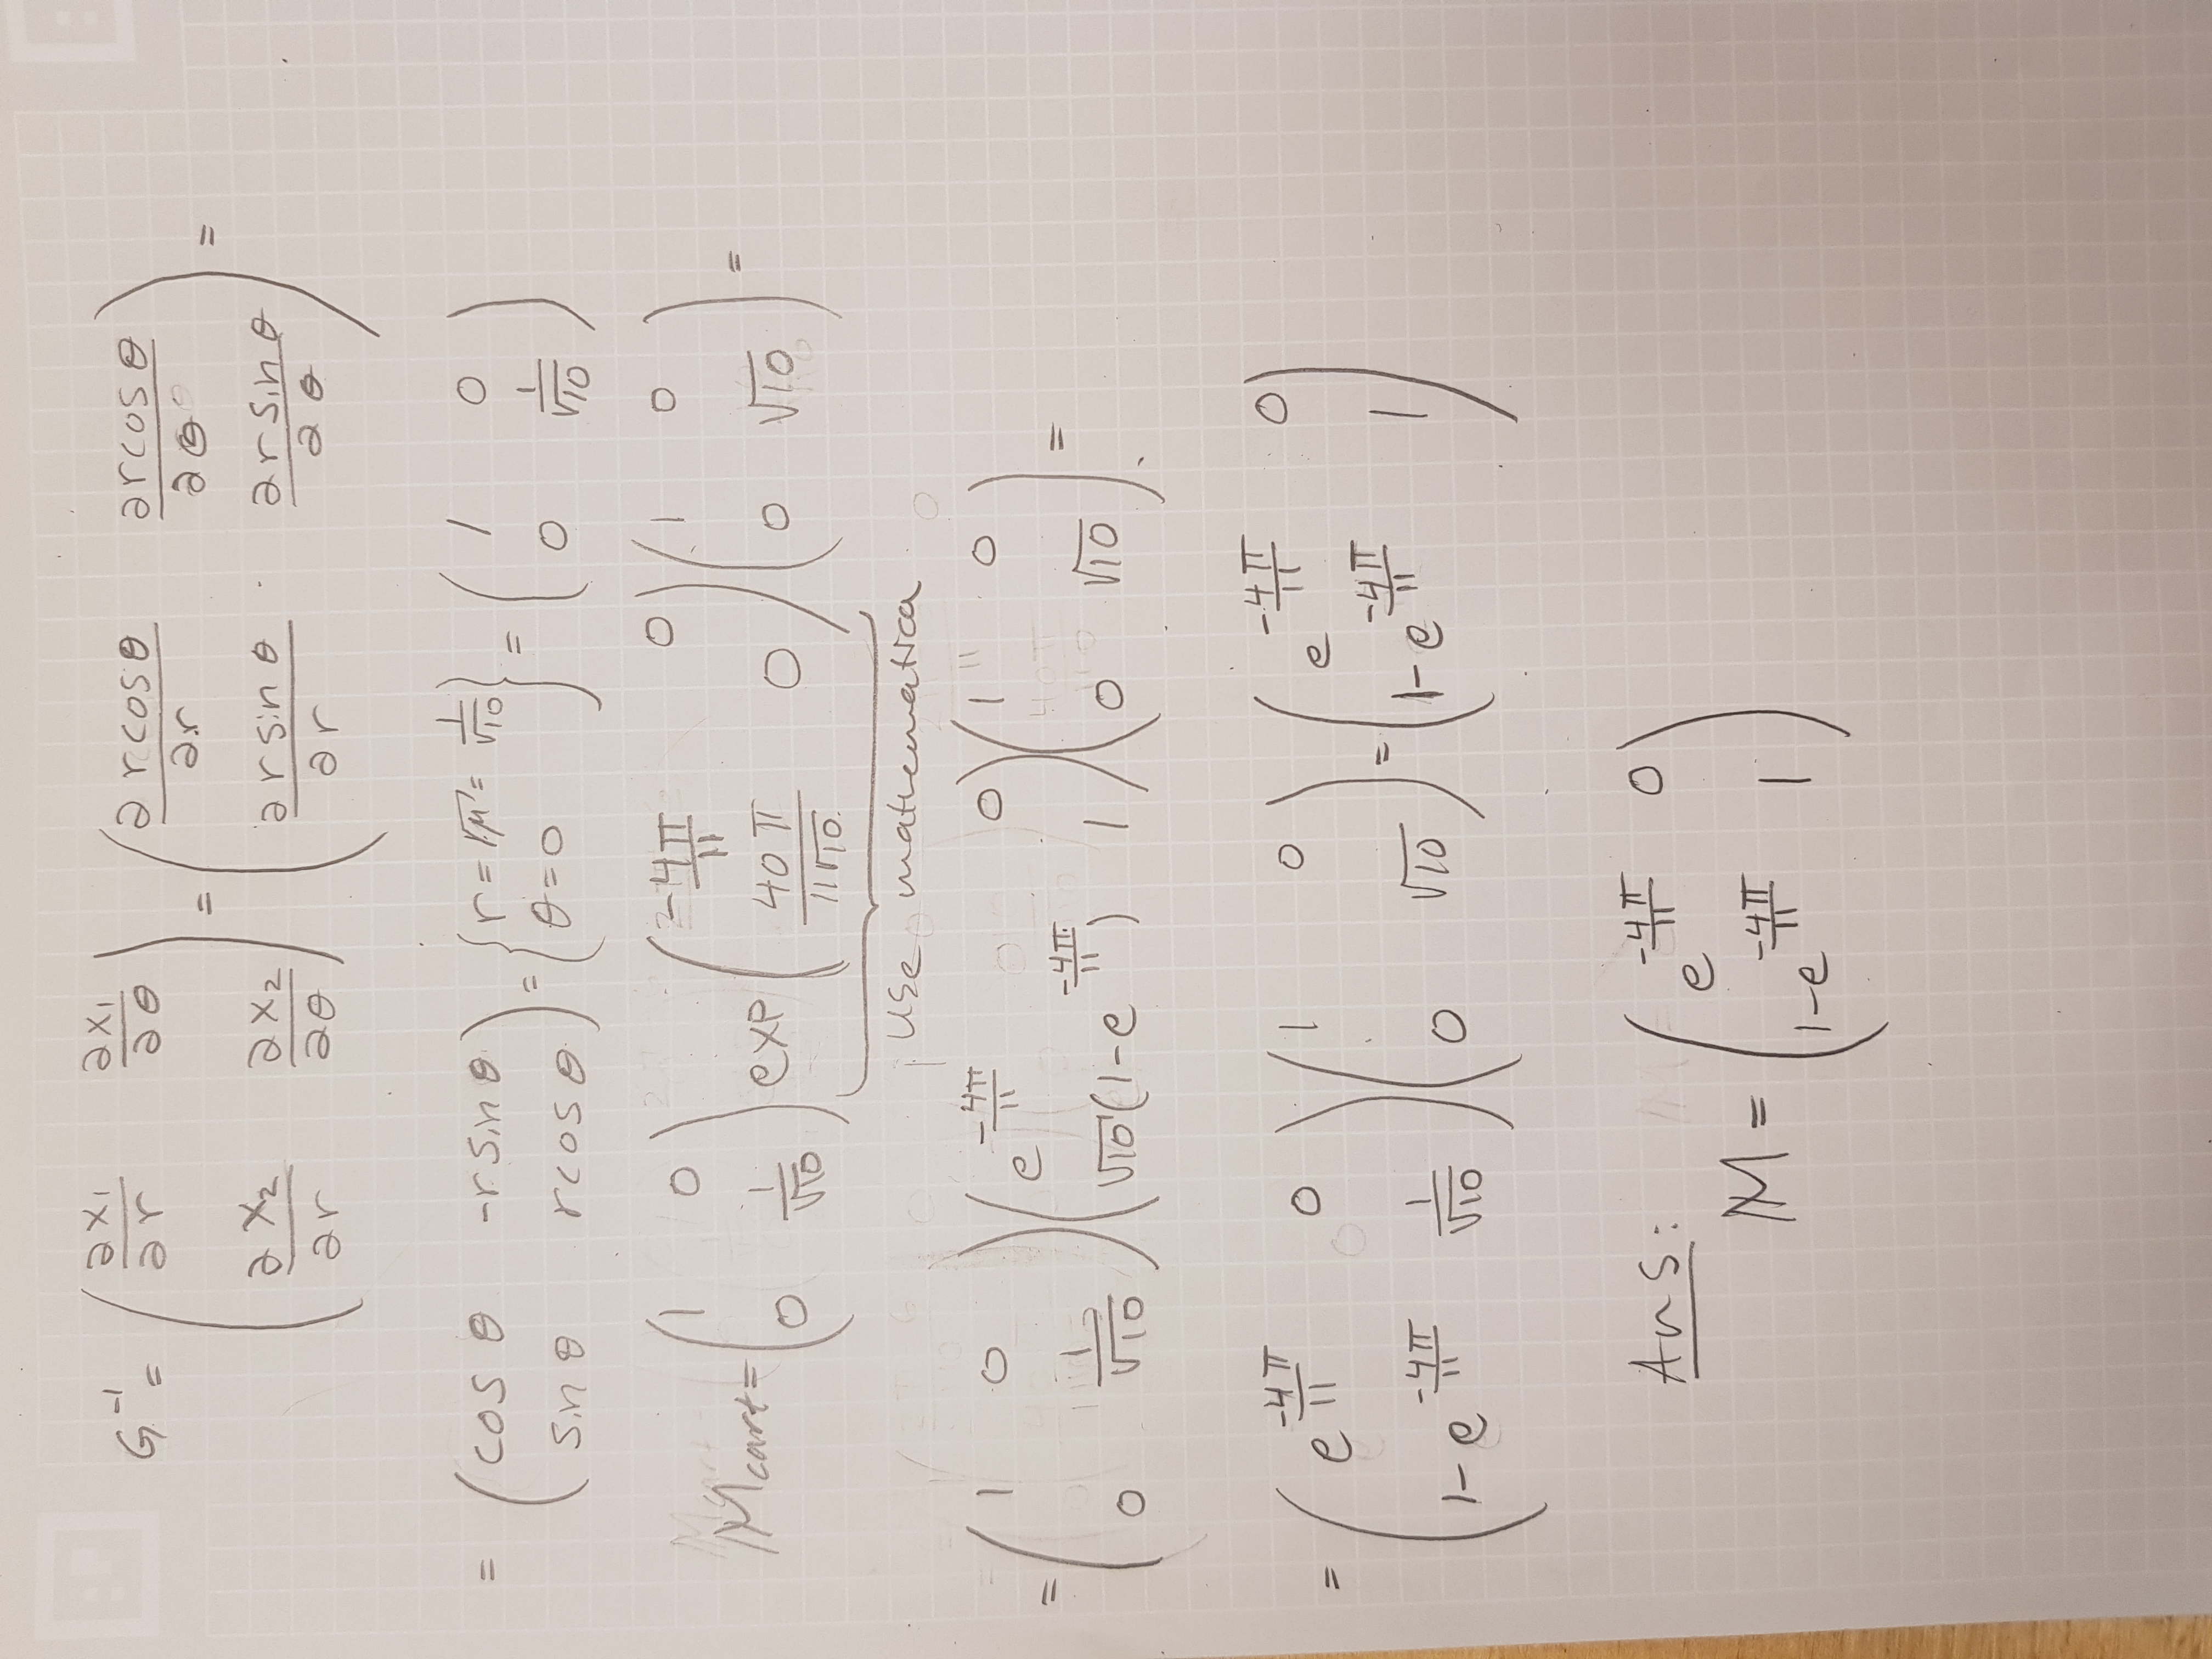 G⁻¹ = ( ∂x₁/∂r ∂x₁/∂θ ; ∂x₂/∂r ∂x₂/∂θ ) = ( ∂rcosθ/∂r ∂rcosθ/∂θ ; ∂rsinθ/∂r ∂rsinθ/∂θ ) =
= ( cosθ -rsinθ ; sinθ rcosθ ) = { r = √μ = 1/√10 ; θ = 0 } = ( 1 0 ; 0 1/√10 )
M_cart = ( 1 0 ; 0 1/√10 ) exp ( -4π/11 0 ; 40π/(11√10) 0 ) ( 1 0 ; 0 √10 ) =
use mathematica
= ( 1 0 ; 0 1/√10 ) ( e^(-4π/11) 0 ; √10(1-e^(-4π/11)) 1 ) ( 1 0 ; 0 √10 ) =
= ( e^(-4π/11) 0 ; 1-e^(-4π/11) 1/√10 ) ( 1 0 ; 0 √10 ) = ( e^(-4π/11) 0 ; 1-e^(-4π/11) 1 )
Ans:
M = ( e^(-4π/11) 0 ; 1-e^(-4π/11) 1 )